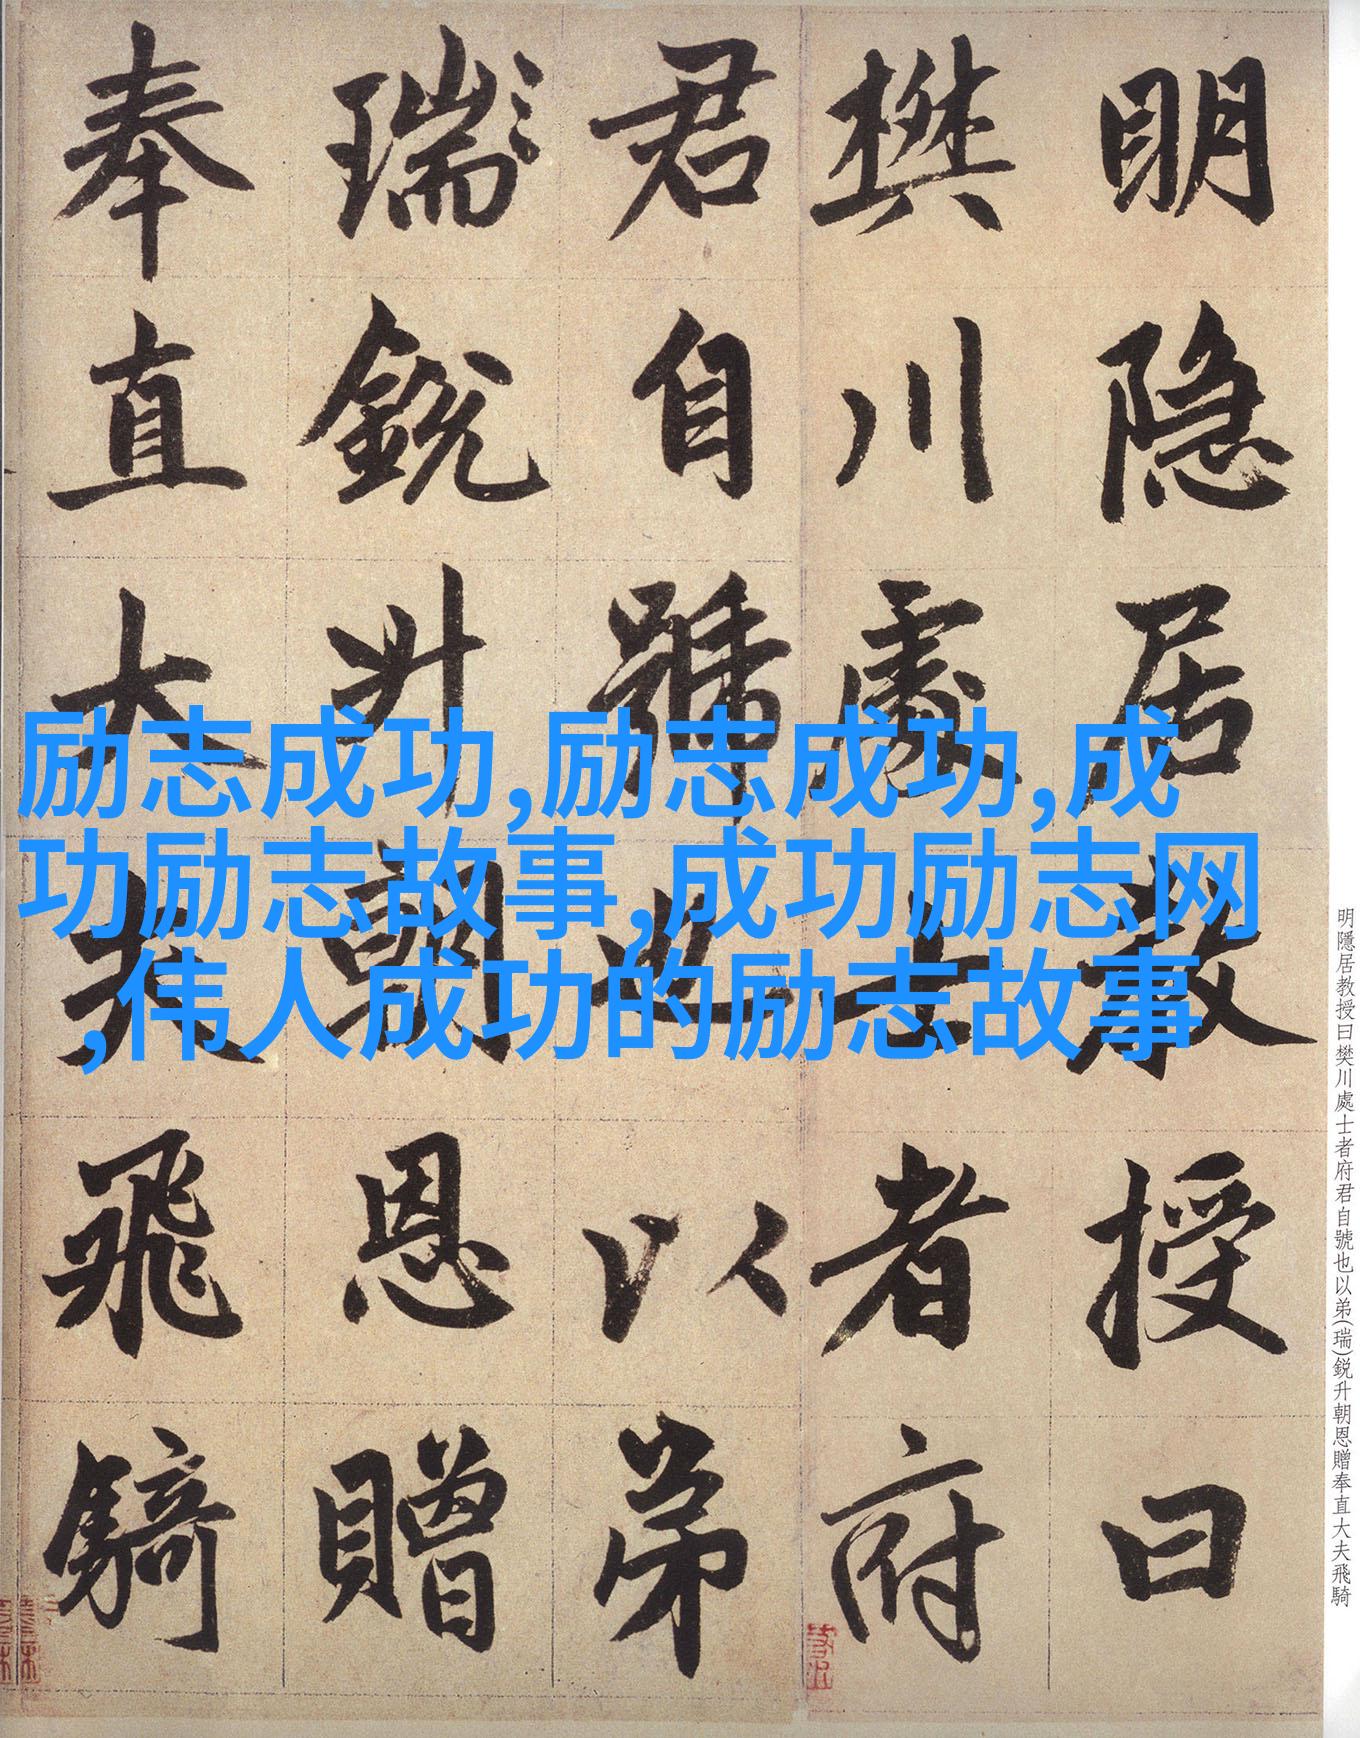 明隐居教授曰
樊川處士者府
君自號也以弟
瑞銳升朝恩贈
奉直大夫飛騎
励志成功,励志成功,成
功励志故事,成功励志网
,伟人成功的励志故事
明隱居教授曰樊川處士者府君自號也以弟(瑞)鋭升朝恩贈奉直大夫飛騎